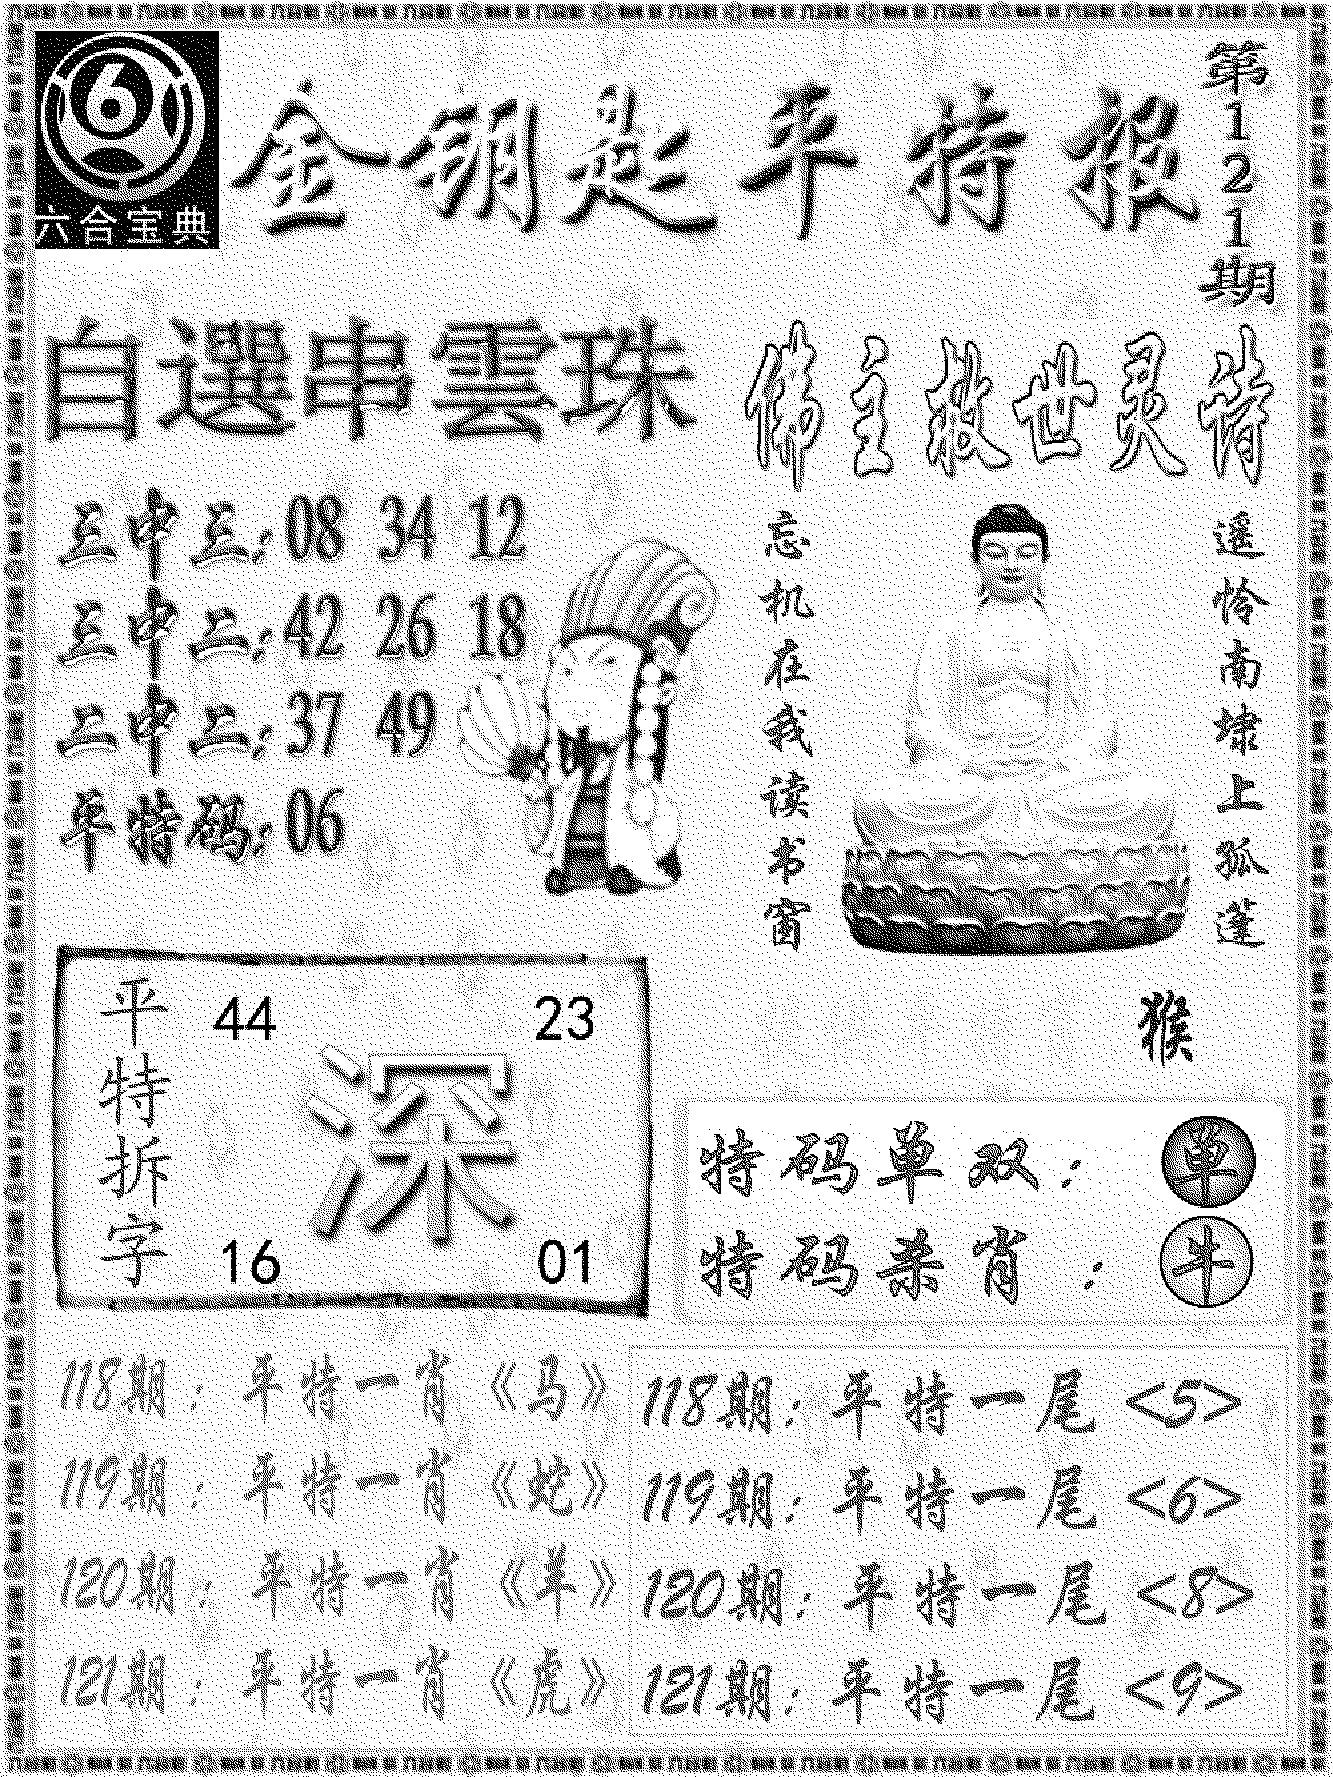 六合宝典
金钥匙平特报
第121期
自選串雲珠
三中三：08 34 12
三中二：42 26 18
二中二：37 49
平特码：06
佛主救世灵诗
遥怜南埭上孤蓬
忘机在我读书窗
猴
平特拆字
44 23
深
16 01
特码单双：单
特码杀肖：牛
118期：平特一肖《马》
119期：平特一肖《蛇》
120期：平特一肖《羊》
121期：平特一肖《虎》
118期：平特一尾<5>
119期：平特一尾<6>
120期：平特一尾<8>
121期：平特一尾<9>